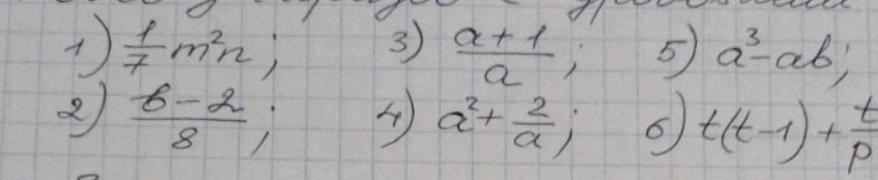 1) 1/7 m²n; 3) (a+1)/a; 5) a³-ab;
2) (b-2)/8; 4) a²+2/a; 6) t(t-1)+t/p